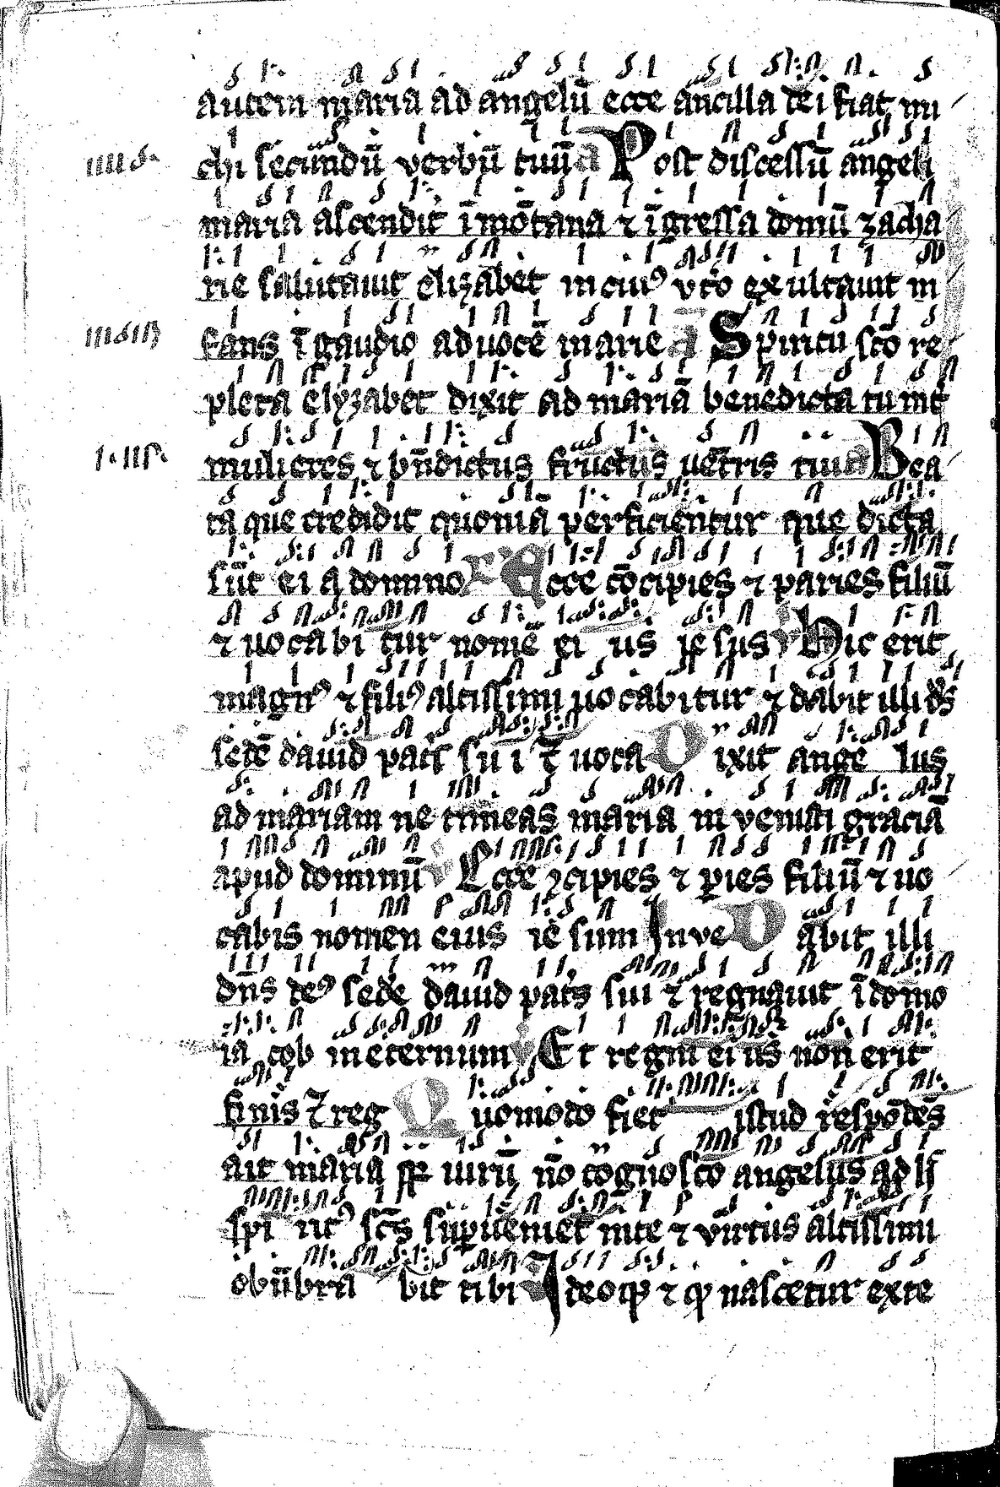 autem maria ad angelū ecce ancilla dei fiat mi
chi secundū verbū tuū a Post discessū angeli
maria ascendit ī mōtana ⁊ īgressa domū zacha
rie salutauit elizabet in cuiꝰ vt̄o exultauit in
fans ī gaudio ad uocē marie a Spiritu sc̄o re
pleta elyzabet dixit ad mariā benedicta tu int̄
mulieres ⁊ bn̄dictus fructus uētris tui a Bea
ta que credidit quoniā perficientur que dicta
sūt ei a domino r Ecce cōcipies ⁊ paries filiū
⁊ uocabi tur nomē ei us ie sus v Hic erit
magnꝰ ⁊ filiꝰ altissimi uocabitur ⁊ dabit illi ds̄
sedē dauid pat̄s su i ⁊ uoca Dixit ange lus
ad mariam ne timeas maria inuenisti graciā
apud dominū v Ecce ꝯcipies ⁊ paries filiū ⁊ uo
cabis nomen eius iē sum Inve Dabit illi
dn̄s deꝰ sedē dauid pat̄s sui ⁊ regnauit ī domo
ia cob in eternum v Et regni ei us non erit
finis ⁊ reg Quomodo fiet istud respōdēs
ait maria q̄ uirū nō cognosco angelus ad h̄
spi rit̄ꝰ sc̄s supueniet in te ⁊ virtus altissimi
obūbra bit tibi v Ideoqꝫ ⁊ qꝫ nascetur ex te